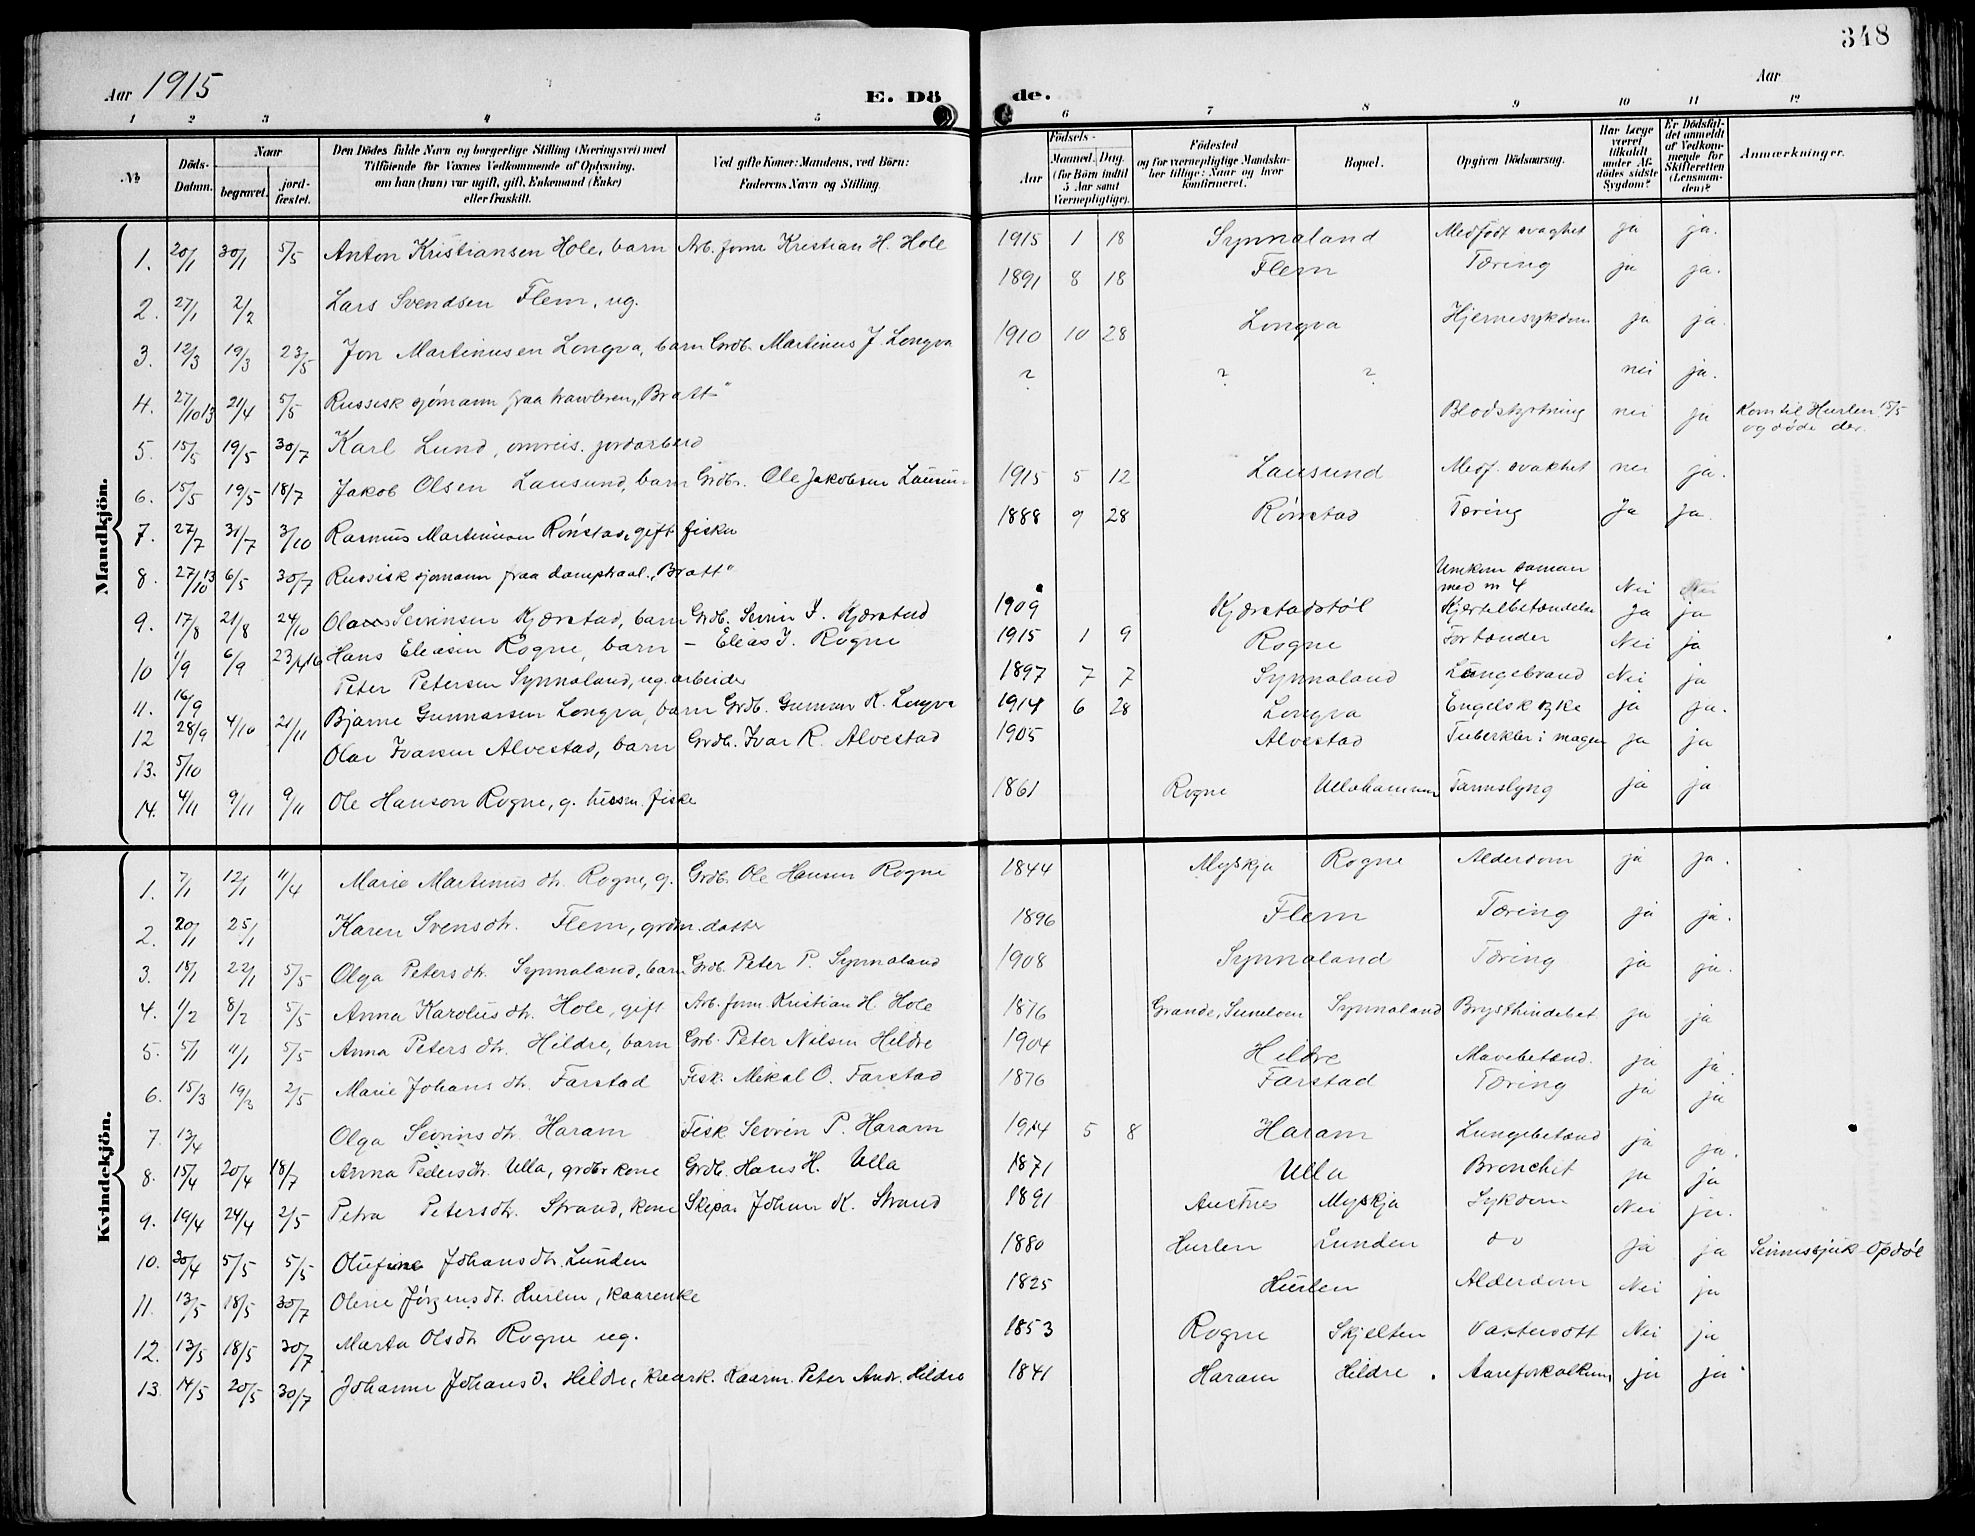 348
Aar 1915 E. Döde. Aar
1 2 3 4 5 6 7 8 9 10 11 12
№ Döds-Datum. Naar begravet. jordfæstet. Den Dödes fulde Navn og borgerlige Stilling (Næringsvei) med Tilföiende for Voxnes Vedkommende af Oplysning, om han (hun) var ugift, gift, Enkemand (Enke) eller fraskilt. Ved gifte Koner: Mandens, ved Börn: Faderens Navn og Stilling. Födsels- Aar Maaned. Dag. (for Börn indtil 5 Aar samt Værnepligtige). Födested og for værnepligtige Mandskaber tillige: Naar og hvor konfirmeret. Bopæl. Opgiven Dödsaarsag. Har Læge været tilkaldt under Afdödes sidste Sygdom? Er Dödsfaldet anmeldt af Vedkommende for Skifteretten (Lensmanden)? Anmærkninger.
Mandkjön.
1. 20/1 30/1 5/5 Anton Kristiansen Hole, barn Arb. form Kristian H. Hole 1915 1 18 Synnaland Medfødt svaghet ja ja.
2. 27/1 2/2 Lars Svendsen Flem, ug. 1891 8 18 Flem Tæring ja ja.
3. 12/3 19/3 23/5 Jon Martinusen Longva, barn Grdb. Martinus J. Longva 1910 10 28 Longva Hjernesykdom ja ja.
4. 27/10 13 21/4 5/5 Russisk sjømann fraa trawleren „Bratt" ? ? ? nei ja.
5. 15/5 19/5 30/7 Karl Lund, omreis. jordarbeid Blodstyrtning nei ja Kom til Hurlen 15/5 og døde der.
6. 15/5 19/5 18/7 Jakob Olsen Lausund, barn Grdbr. Ole Jakobsen Lausun- 1915 5 12 Lausund Medf. svakhet nei ja.
7. 27/7 31/7 3/10 Rasmus Martinusen Rønstad, gift fisker 1888 9 28 Rønstad Tæring Ja Ja.
8. 27/10 13 6/5 30/7 Russisk sjømann fraa dampskaal. „Bratt" Umkom saman med nr 4 Nei
9. 17/8 21/8 24/10 Sevrinsen Kjærstad, barn Grdb. Sevrin I. Kjærstad 1909 Kjærstadstøl Kjertelbetændelse Ja ja
10 1/9 6/9 Hans Eliasen Rogne, barn – Elias I. Rogne 1915 1 9 Rogne Fortænder Nei ja
11. 16/9 Peter Petersen Synnaland, ug. arbeider 1897 7 7 Synnaland Lungebrand Nei ja
12 28/9 4/10 21/11 Bjarne Gunnarsen Longva, barn Grdb. Gunnar K. Longva 1914 6 28 Longva Engelsk syke ja ja.
13. 5/10 Olav Ivarsen Alvestad, barn Grdb. Ivar R. Alvestad 1905 Alvestad Tuberkler i magen ja ja
14. 4/11 9/11 9/11 Ole Hanson Rogne, g. husm. fiske 1861 Rogne Ullahammer Tarmslyng ja ja
Kvindekjön.
1. 7/1 12/1 11/4 Marie Martinus dtr. Rogne, g. Grdb. Ole Hansen Rogne 1844 Myskja Rogne Alderdom ja ja.
2. 20/1 25/1 Karen Svensdtr. Flem, grdm. datter 1896 Flem Tæring ja ja.
3. 18/1 22/1 5/5 Olga Petersdtr. Synnaland, barn Grdb. Peter P. Synnaland 1908 Synnaland Tæring ja ja.
4. 1/2 8/2 5/5 Anna Karolusdtr. Hole, gift Arb. form. Kristian H. Hole 1876 Grande, Sunelven Synnaland Brysthindebet ja ja
5. 5/1 11/1 5/5 Anna Petersdtr. Hildre, barn Grb. Peter Nilsen Hildre 1904 Hildre Mavebetænd. ja ja.
6. 15/3 19/3 2/5 Marie Johansdtr. Farstad Fisk. Mikal O. Farstad 1876 Farstad Tæring ja ja
7. 13/4 Olga Sevrinsdtr. Haram Fisk Sevrin P. Haram 1914 5 8 Haram Lungebetænd ja ja.
8. 15/4 20/4 18/7 Anna Pedersdtr. Ulla, grdbr kone Grdb. Hans H. Ulla 1871 Ulla Bronchit ja ja
9. 19/4 24/4 2/5 Petra Petersdtr. Strand, kone Skipar Johan K. Strand 1891 Austnes Myskja Sykdom Nei ja.
10. 30/4 5/5 5/5 Olufine Johansdtr. Lunden 1880 Hurlen Lunden do ja ja Sinnssjuk - Opdøl
11. 13/5 18/5 30/7 Oline Jørgensdt. Hurlen, kaarenke 1825 Hurlen Alderdom Nei ja
12. 13/5 18/5 30/7 Marta Olsdtr Rogne ug. 1853 Rogne Skjelten Vattersott Nei ja
13. 14/5 20/5 30/7 Johanne Johansd. Hildre, kaark. Kaarm. Peter Andr. Hildre 1841 Haram Hildre Aareforkalkning ja ja